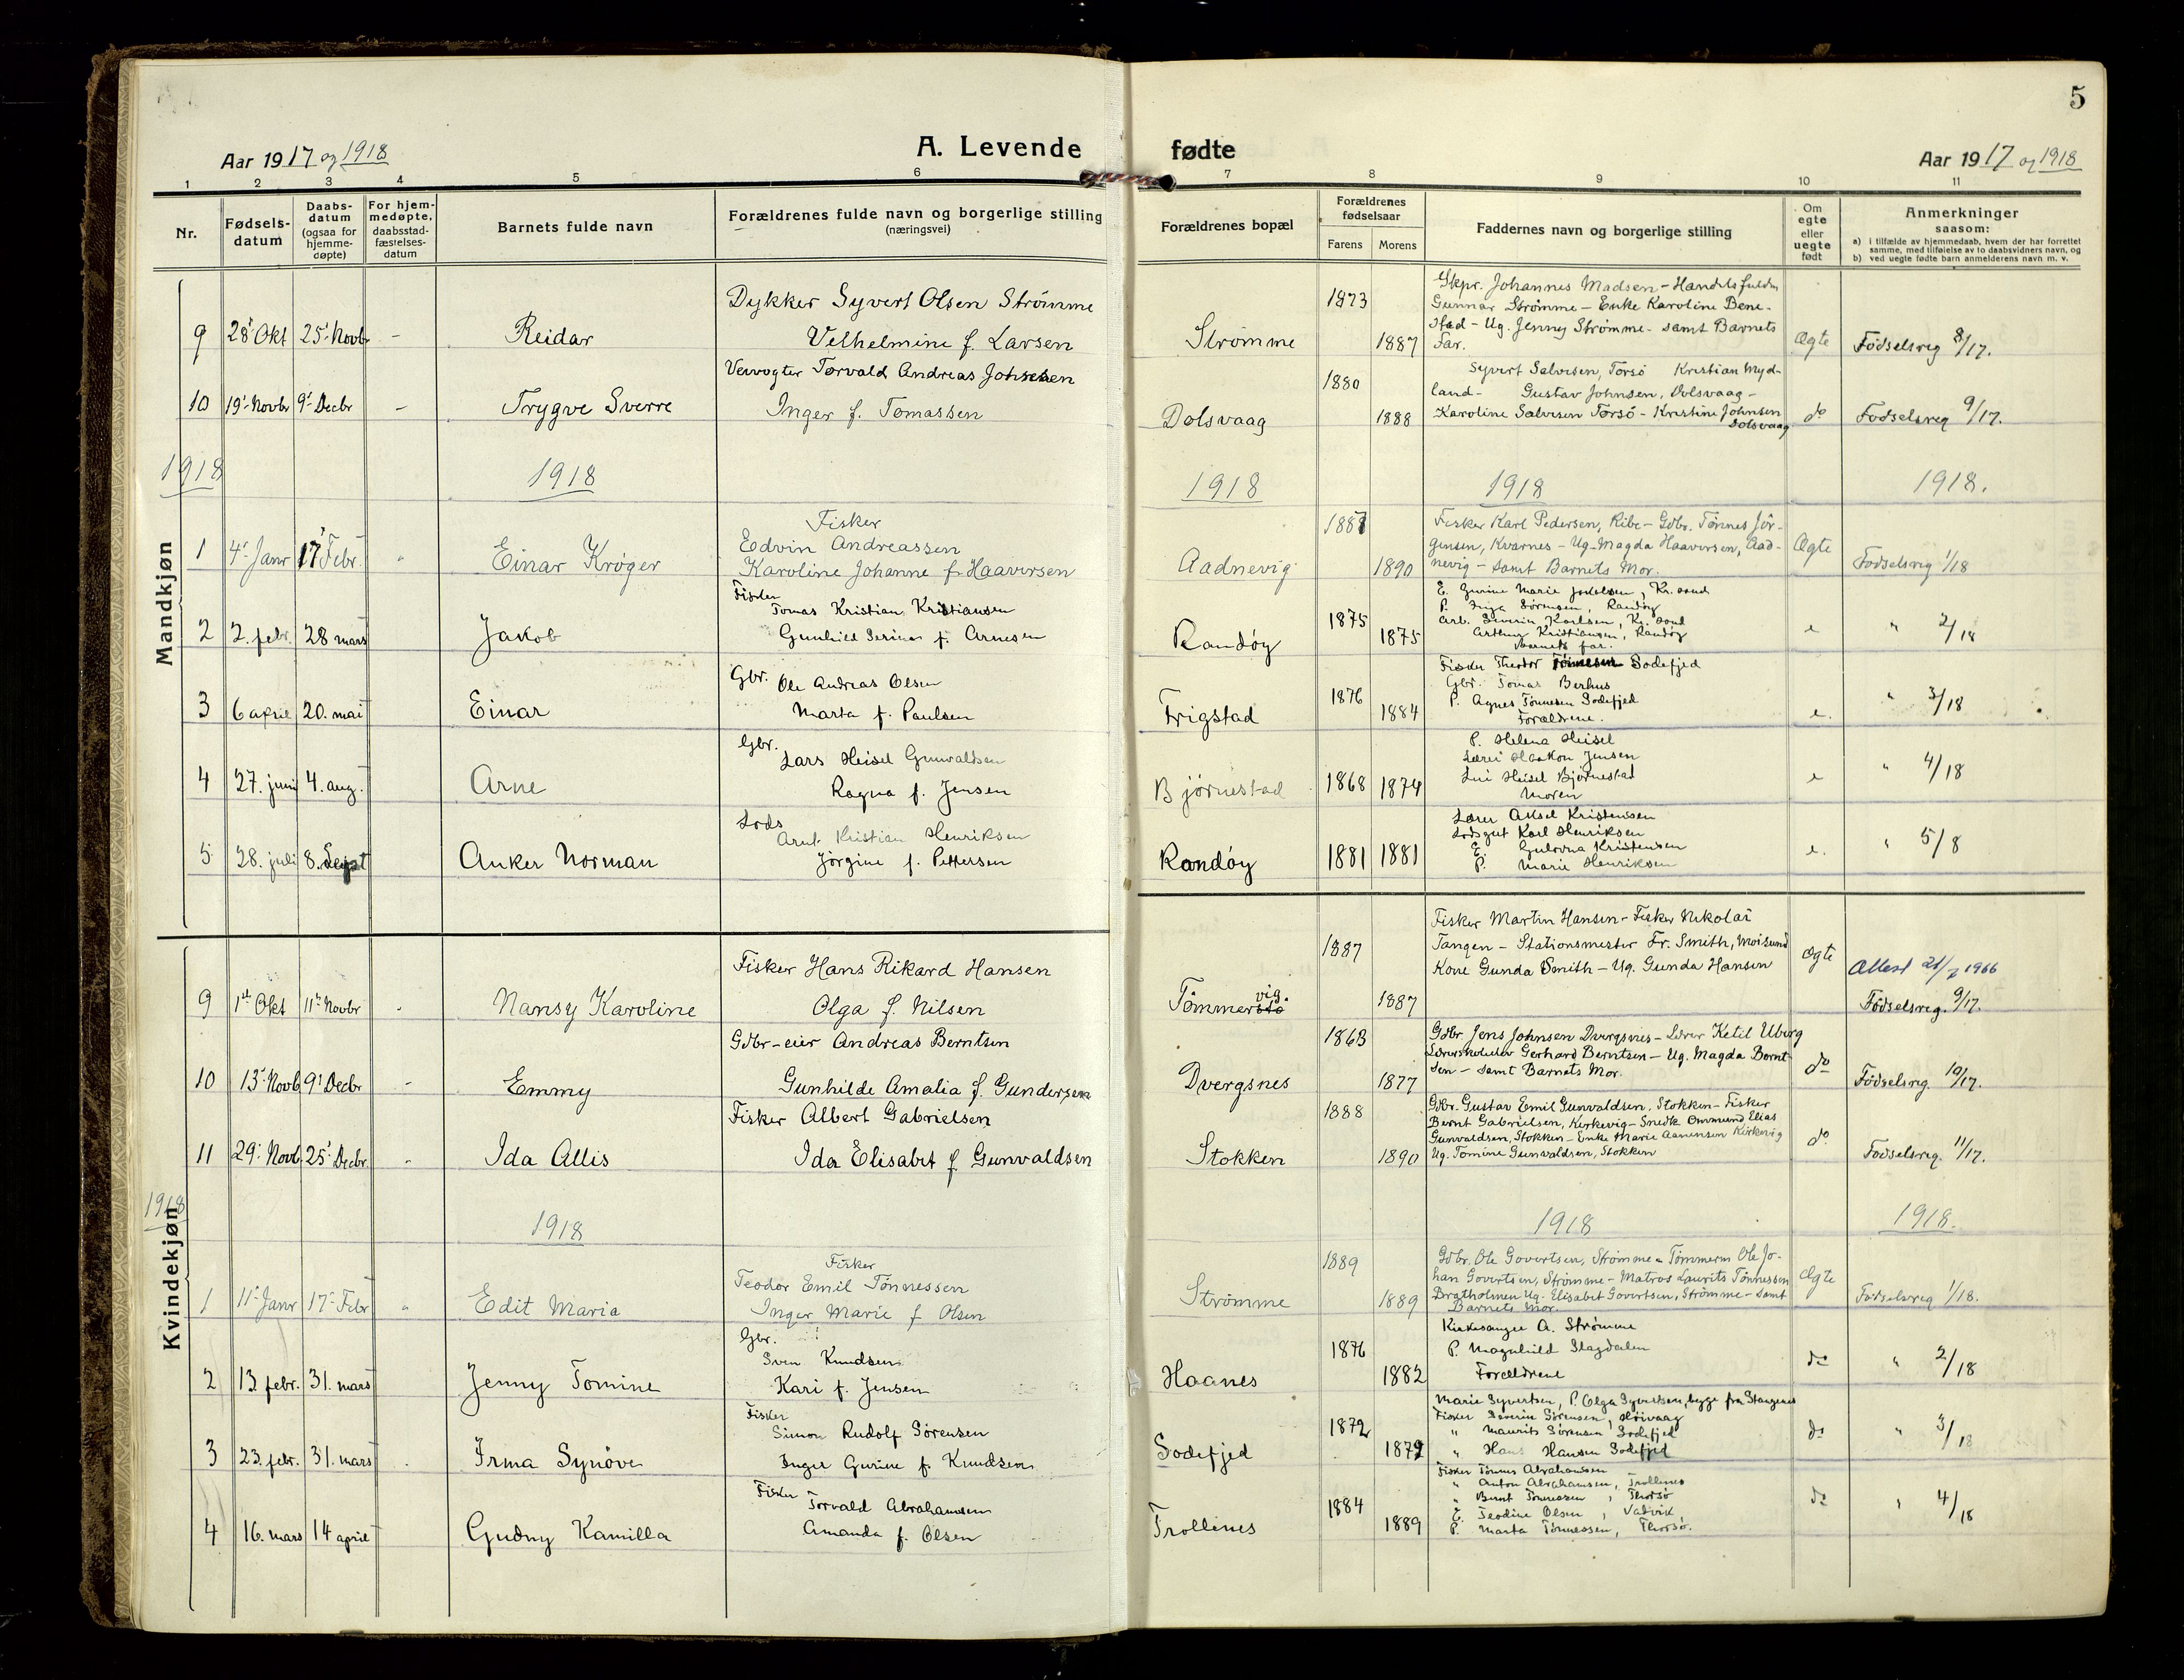 5
Aar 1917 og 1918
A. Levende fødte
Aar 1917 og 1918
1 2 3 4 5 6 7 8 9 10 11
Nr.
Fødsels-
datum
Daabs-
datum
(ogsaa for
hjemme-
døpte)
For hjem-
medøpte,
daabsstad-
fæstelses-
datum
Barnets fulde navn
Forældrenes fulde navn og borgerlige stilling
(næringsvei)
Forældrenes bopæl
Forældrenes
fødselsaar
Farens Morens
Faddernes navn og borgerlige stilling
Om
egte
eller
uegte
født
Anmerkninger
saasom:
a) i tilfælde av hjemmedaab, hvem der har forrettet
samme, med tilføielse av to daabsvidners navn, og
b) ved uegte fødte barn anmelderens navn m. v.
Mandkjøn
9 28' Okt 25' Novbr - Reidar
Dykker Syvert Olsen Strömme
Velhelmine f. Larsen
Strømme 1873 1887
Skpr. Johannes Madsen - Handelsfuldm
Gunnar Strømme - Enke Karoline Bene-
stad - Ug. Jenny Strømme - samt Barnets
Far.
Ægte Födselsreg 8/17.
10 19' Novbr 9' Decbr - Trygve Sverre
Veivogter Torvald Andreas Johnsen
Inger f. Tomassen
Dolsvaag 1880 1888
Syvert Salvesen, Torsö Kristian Myd-
land - Gustav Johnsen, Dolsvaag -
Karoline Salvesen Torsö - Kristine Johnsen
Dolsvaag
do Födselsreg 9/17.
1918 1918 1918 1918 1918.
1 4' Janr 17' Febr. " Einar Krøger
Fisker
Edvin Andreassen
Karoline Johanne f. Haaversen
Aadnevig 1887 1890
Fisker Karl Pedersen, Ribe - Gdbr. Tönnes Jör-
gensen, Kvarnes - Ug. Magda Haaversen, Aad-
nevig - samt Barnets Mor.
Ægte Födselsreg 1/18
2 2. febr. 28 mars Jakob
Fisker
Tomas Kristian Kristiansen
Gunhild Serine f. Arnesen
Randøy 1875 1875
E. Gurine Marie Jakobsen, Kr.sand
P. Inga Sørensen, Randøy
Arb. Severin Karlsen, Kr.sand
Arthur Kristiansen, Randøy
Barnets far.
e " 2/18
3 6 april 20. mai Einar
Gbr. Ole Andreas Olsen
Marta f. Paulsen
Frigstad 1876 1884
Fisker Theodor Tønnesen Sodefjed
Gbr. Tomas Berhus
P. Agnes Tønnesen Sodefjed
Forældrene.
e. " 3/18
4 27. juni 4. aug. Arne
Gbr.
Lars Heisel Gunvaldsen
Ragna f. Jensen
Bjørnestad 1868 1874
P. Helena Heisel
Lærer Haakon Jensen
Heisel Bjørnestad
Moren
e " 4/18
5 28. juli 8. Sept Anker Norman
Lods
Arnt Kristian Henriksen
Jörgine f. Pettersen
Randøy 1881 1881
Lærer Aksel Kristensen
Lodsgut Karl Henriksen
E. Gulovna Kristensen
P. Marie Henriksen
e. " 5/8
Kvindekjøn
9 1st Okt 11te Novbr - Nansy Karoline
Fisker Hans Rikard Hansen
Olga f. Nilsen
Tömmerstö vig. 1887 1887
Fisker Martin Hansen - Fisker Nikolai
Tangen - Stationsmester Fr. Smith, Moisund
Kone Gunda Smith - Ug. Gunda Hansen
Ægte Attest 21/2 1966
Födselsreg. 9/17.
10 13' Novb 9' Decbr - Emmy
Gdbr-eier Andreas Berntsen
Gunhilde Amalia f. Gundersen
Dvergsnes 1863 1877
Gdbr. Jens Johnsen Dvergsnes - Lærer Ketil Uberg
Lærerskoleelev Gerhard Berntsen - Ug. Magda Bernt-
sen - samt Barnets Mor.
do Födselsreg. 10/17.
11 29' Novb 25' Decbr. - Ida Allis
Fisker Albert Gabrielsen
Ida Elisabet f. Gunvaldsen
Stokken 1888 1890
Gdbr. Gustav Emil Gunvaldsen, Stokken - Fisker
Bernt Gabrielsen, Kirkevig - Snedk Ommund Elias
Gunvaldsen, Stokken - Enke Marie Aanensen Kirkevig
Ug. Tomine Gunvaldsen, Stokken
do Födselsreg. 11/17.
1918 1918 1918 1918.
1 11' Janr 17' Febr " Edit Maria
Fisker
Teodor Emil Tönnessen
Inger Marie f Olsen
Strømme 1889 1889
Gdbr. Ole Govertsen, Strømme - Tømmerm Ole Jo-
han Govertsen, Strømme - Matros Laurits Tønnessen
Bratholmen Ug. Elisabet Govertsen, Strømme - samt
Barnets Mor.
Ægte Födselsreg 1/18.
2 13. febr. 31. mars Jenny Tomine
Gbr.
Sven Knudsen
Kari f. Jensen
Haanes 1876 1882
Kirkesanger A. Strømme
P. Magnhild Slagdalen
Forældrene
do " 2/18
3 23. febr. 31. mars Irma Synöve
Fisker
Simon Rudolf Sörensen
Inger Gurine f. Knudsen
Sodefjed 1872 1879
Marie Syvertsen, P. Olga Syvertsen, begge fra Stangenes
Fisker Severin Sörensen, Høivaag
" Maurits Sörensen Sodefjed
" Hans Hansen Sodefjed
do " 3/18
4 16. mars 14 april Gudny Kamilla
Fisker
Torvald Abrahamsen
Amanda f. Olsen
Trollines 1884 1889
Fisker Tönnes Abrahamsen
" Anton Abrahamsen, Trollenes
" Bernt Tönnessen, Thorsö
E. Teodine Olsen, Valsvik
P. Marta Tönnessen, Thorsö.
do " 4/18